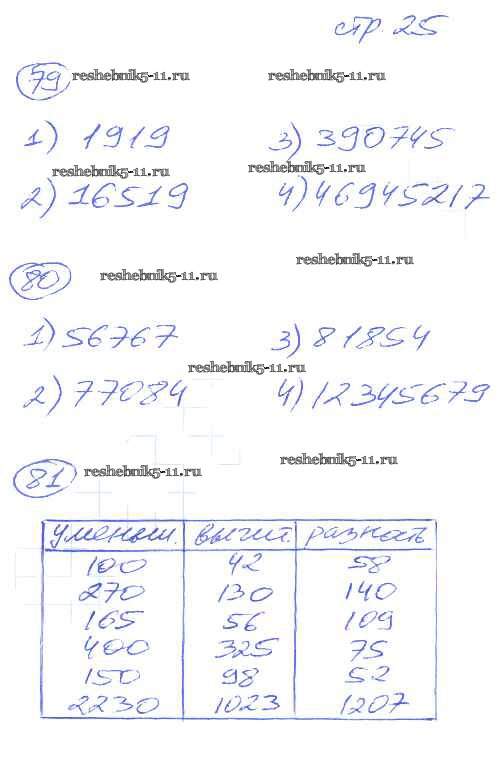 стр. 25
79 reshebnik5-11.ru reshebnik5-11.ru
1) 1919 3) 390745
reshebnik5-11.ru reshebnik5-11.ru
2) 16519 4) 46945217
reshebnik5-11.ru
80 reshebnik5-11.ru
1) 56767 3) 81854
reshebnik5-11.ru
2) 77084 4) 12345679
reshebnik5-11.ru
81 reshebnik5-11.ru
уменьш. вычит. разность
100 42 58
270 130 140
165 56 109
400 325 75
150 98 52
2230 1023 1207